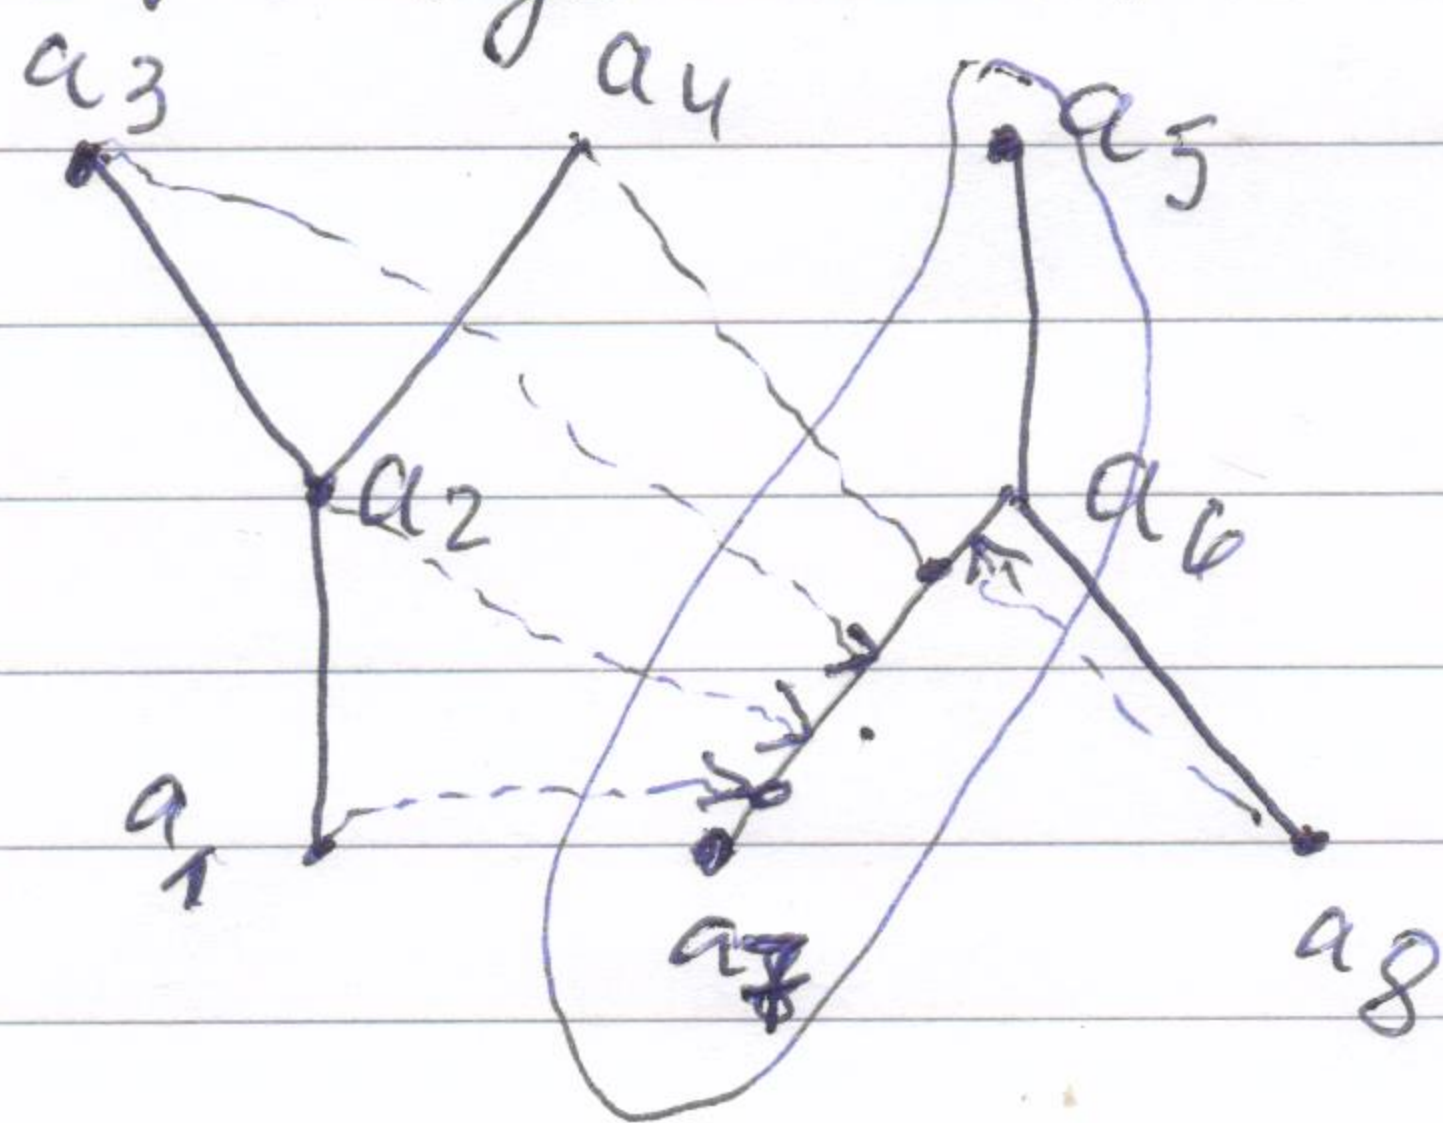 a3 a4 a5
a2 a6
a1
a7 a8